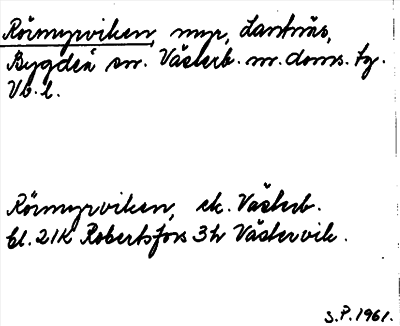 Rörmyrviken, myr, Lantnäs,
Bygdeå sn. Västerb. m. doms. tg.
Vb. l.
Rörmyrviken, ek. Västerb.
bl. 21K Robertsfors 3h Västervik.
S.P. 1961.